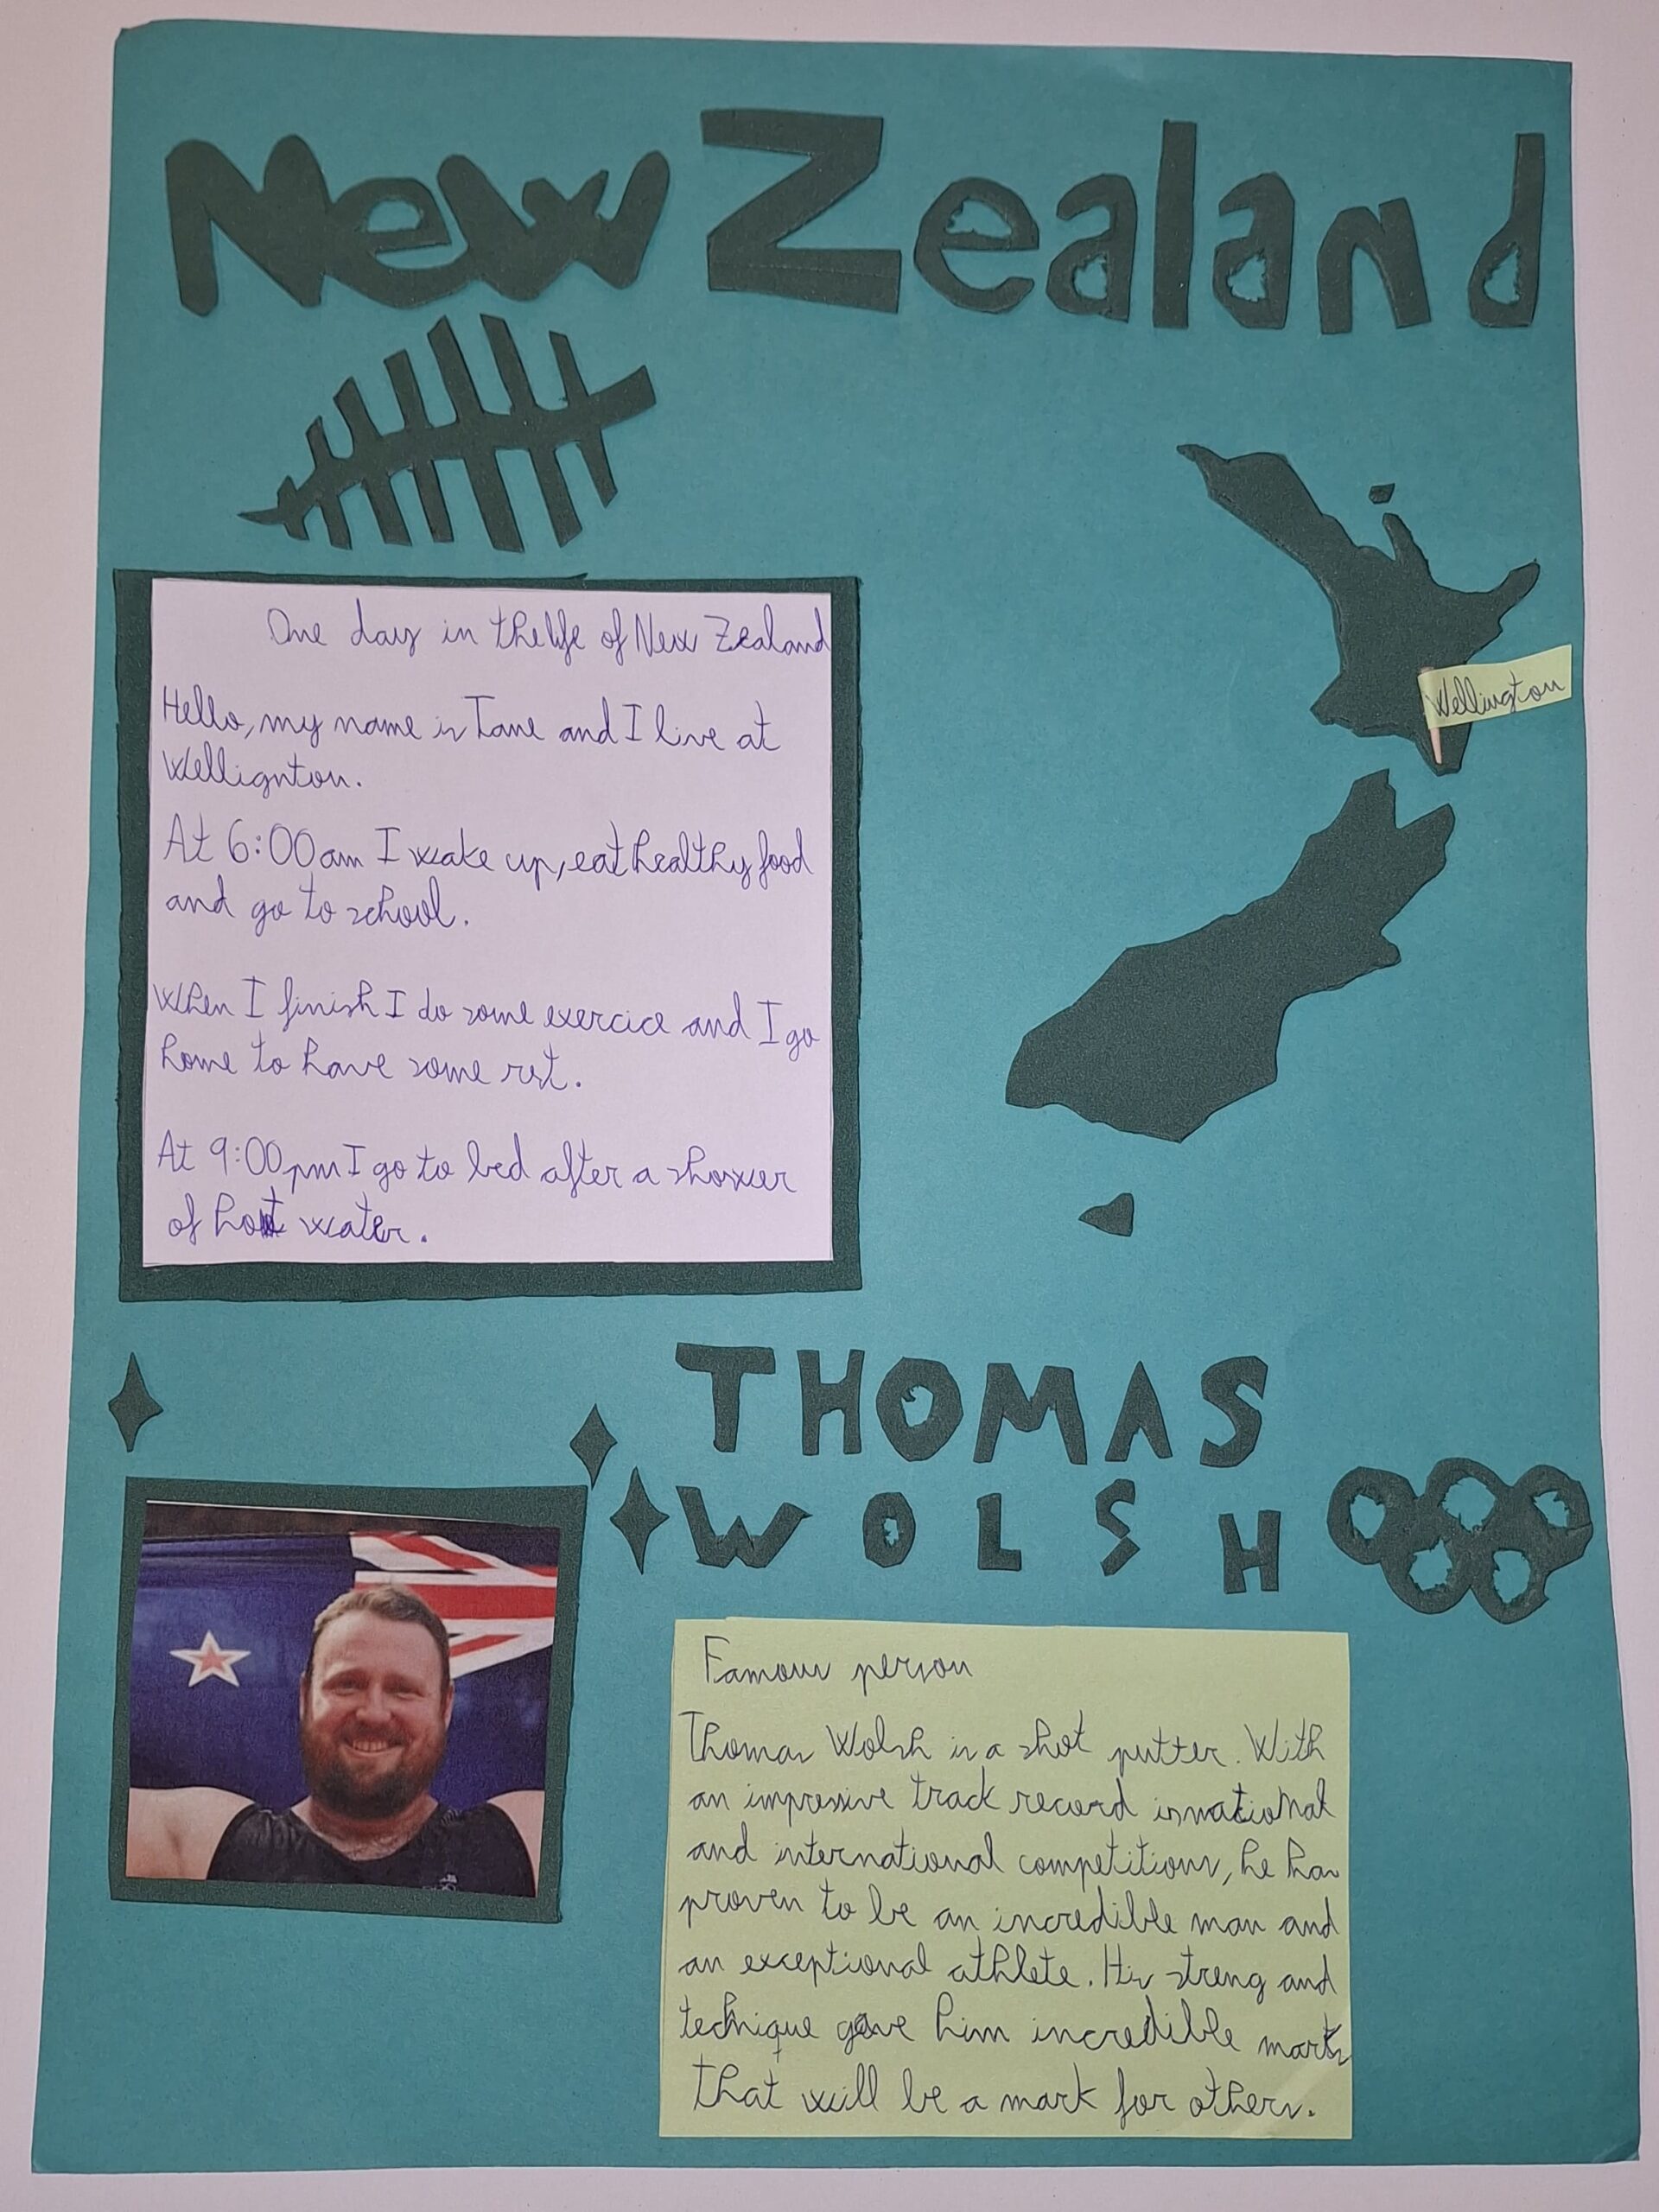 New Zealand
One day in the life of New Zealand
Hello, my name is Tane and I live at
Wellignton.
At 6:00am I wake up, eat healthy food
and go to school.
When I finish I do some exercice and I go
home to have some rest.
At 9:00pm I go to bed after a shower
of hot water.
Wellington
THOMAS
WOLSH
Famous person
Thomas Wolsh is a shot putter. With
an impressive track record in national
and international competitions, he has
proven to be an incredible man and
an exceptional athlete. His streng and
technique gave him incredible marks
that will be a mark for others.